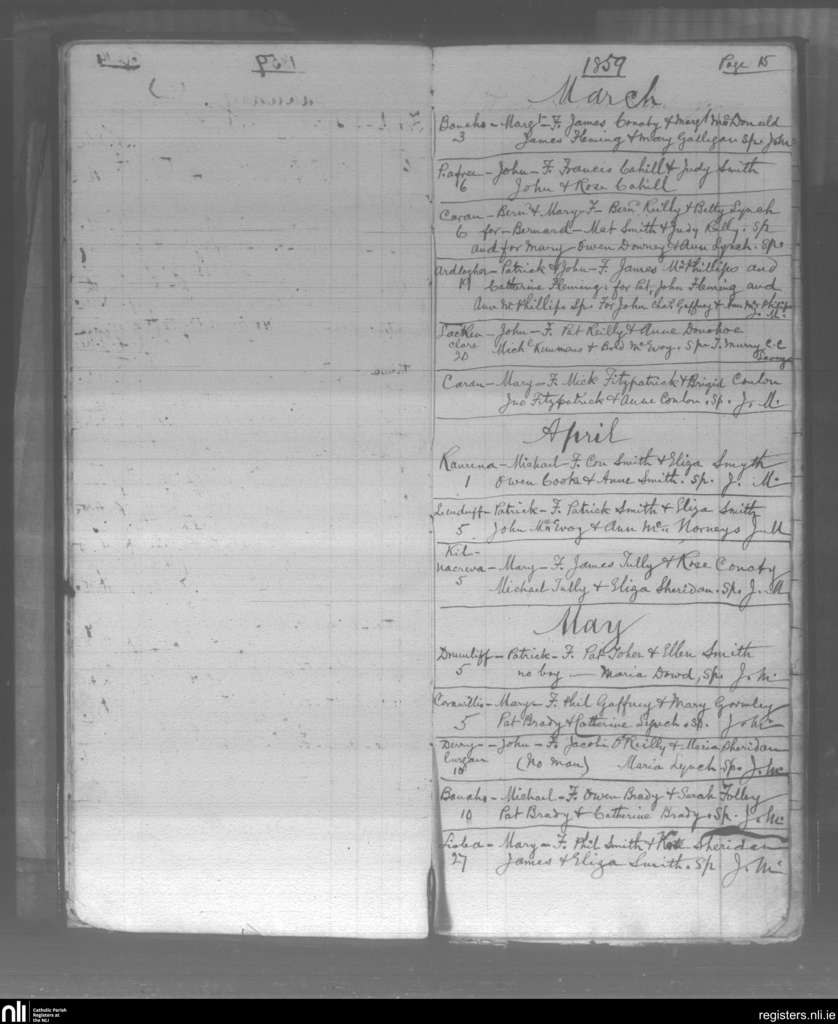 1859
1859 Page 15
March
Bonaho - Margt - F. James Conaty & Margt McDonald
3 James Fleming & Mary Galligan Sp. John
- John - F. Francis Cahill & Judy Smith
6 John & Rose Cahill
Coran - Bern. & Mary - F - Bern. Reilly & Betty Lynch
6 for - Bernard - Mat Smith & Judy Reilly. Sp
and for Mary - Owen Downey & Ann Lynch. Sps
Ardlogher - Patrick & John - F. James McPhillips and
19 Catherine Fleming; for Pat, John Fleming and
Ann McPhillips Sps. For John Chas Gaffney &
J. Mc
Lacken - John - F. Pat Reilly & Anne Donohoe
clare Michl & McEvoy. Sps T. Murry C.C
20
Coran - Mary - F. Mick Fitzpatrick & Brigid Conlon
Jno Fitzpatrick & Anne Conlon. Sp. J. Mc
April
- Michael - F. Con Smith & Eliza Smyth
1 Owen Cooke & Anne Smith. Sp. J. Mc
- Patrick - F. Patrick Smith & Eliza Smith
5 John McEvoy & Ann J M
Kil-
nacreva - Mary - F. James Tully & Rose Conaty
5 Michael Tully & Eliza Sheridan. Sps. J. M
May
Drumliff - Patrick - F. Pat Toher & Ellen Smith
5 no boy - Maria Dowd, Sps J. Mc
- Mary - F. Phil Gaffney & Mary Gormley
5 Pat Brady & Catherine Lynch. Sp. J. Mc
Derry- - John - F. Jacob O'Reilly & Maria Sheridan
10 (No man) Maria Lynch Sp. J. Mc
Bonaho - Michael - F. Owen Brady & Sarah Folley
10 Pat Brady & Catherine Brady. Sp. J. Mc
- Mary - F. Phil Smith & Sheridan
27 James & Eliza Smith. Sp J. Mc
nli Catholic Parish
Registers at
the NLI
registers.nli.ie